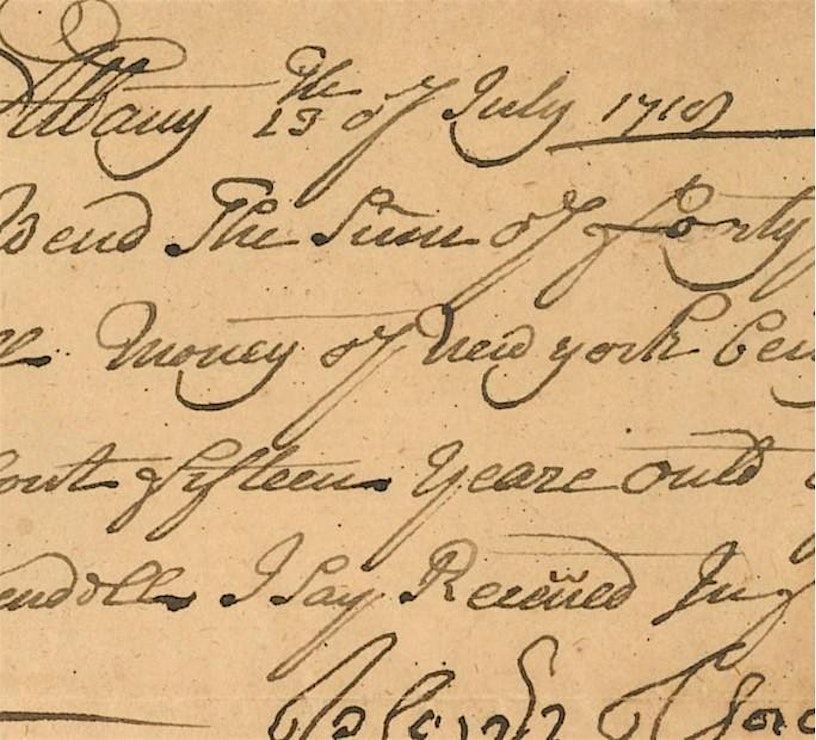 Albany 13 the of July 1718
Wend The Sum of fforty
Money of New york bei
out ffifteen Yeare ould
endoll I say Receiued In f